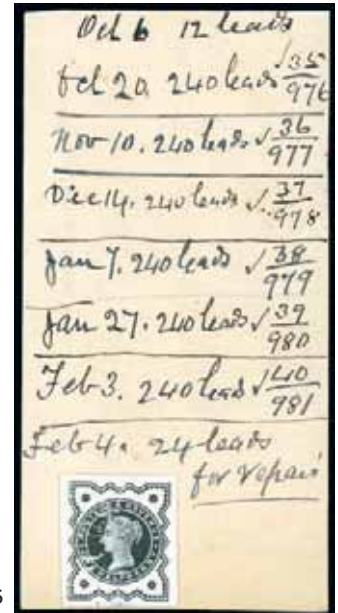 Oct 6 12 leads
Oct 20. 240 leads √ 35/976
Nov 10. 240 leads √ 36/977
Dec 14. 240 leads √ 37/978
Jan 7. 240 leads √ 38/979
Jan 27. 240 leads √ 39/980
Feb 3. 240 leads √ 40/981
Feb 4. 24 leads
for repair